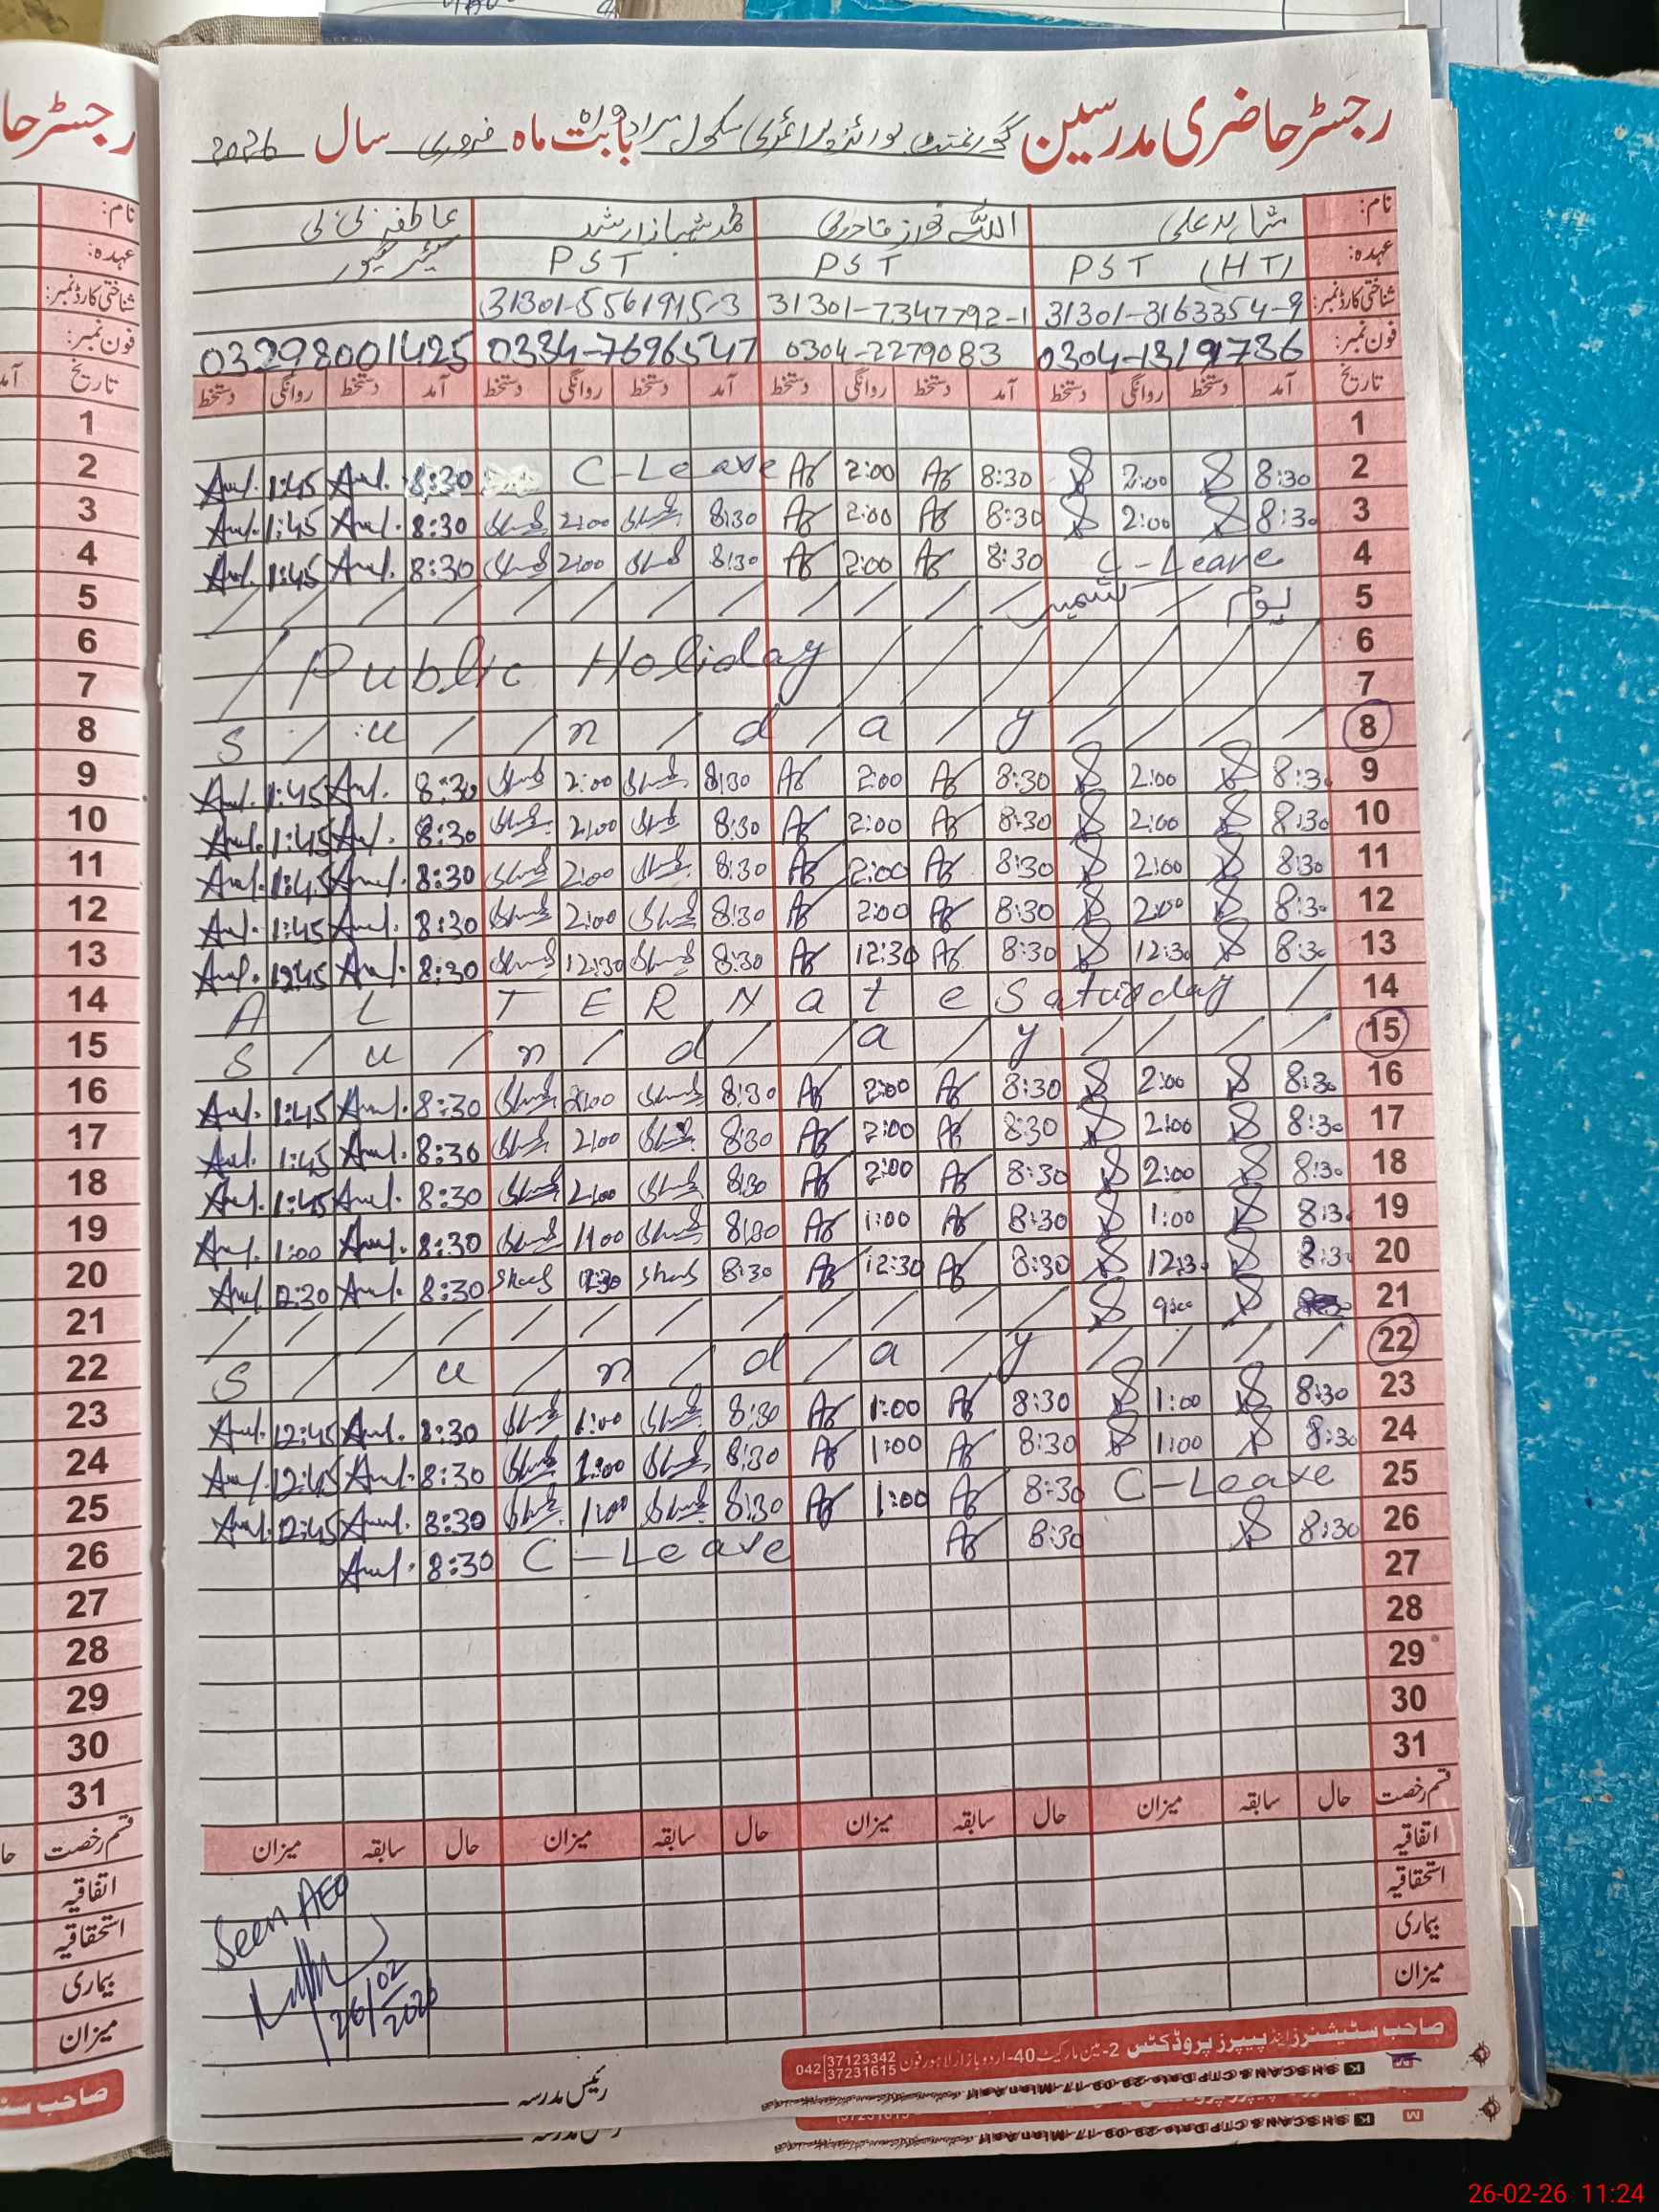 رجسٹر حاضری مدرسین گورنمنٹ بوائز پرائمری سکول مراد واہ بابت ماہ فروری سال 2026
نام: شاہد علی اللہ نواز قادری محمد شہباز ارشد عاطفہ بی بی
عہدہ: PST (HT) PST PST کیئر گیور
شناختی کارڈ نمبر: 31301-3163354-9 31301-7347792-1 31301-5561915-3
فون نمبر: 0304-1319736 0304-2279083 0334-7696547 03298001425
تاریخ آمد دستخط روانگی دستخط آمد دستخط روانگی دستخط آمد دستخط روانگی دستخط آمد دستخط روانگی دستخط
1
2 8:30 2:00 8:30 2:00 C-Leave 8:30 1:45
3 8:30 2:00 8:30 2:00 8:30 2:00 8:30 1:45
4 C-Leave 8:30 2:00 8:30 2:00 8:30 1:45
5 یوم کشمیر
6 Public Holiday
7
8 Sunday
9 8:30 2:00 8:30 2:00 8:30 2:00 8:30 1:45
10 8:30 2:00 8:30 2:00 8:30 2:00 8:30 1:45
11 8:30 2:00 8:30 2:00 8:30 2:00 8:30 1:45
12 8:30 2:00 8:30 2:00 8:30 2:00 8:30 1:45
13 8:30 12:30 8:30 12:30 8:30 12:30 8:30 12:45
14 ALTERNate Saturday
15 Sunday
16 8:30 2:00 8:30 2:00 8:30 2:00 8:30 1:45
17 8:30 2:00 8:30 2:00 8:30 2:00 8:30 1:45
18 8:30 2:00 8:30 2:00 8:30 2:00 8:30 1:45
19 8:30 1:00 8:30 1:00 8:30 1:00 8:30 1:00
20 8:30 12:30 8:30 12:30 8:30 12:30 8:30 12:30
21
22 Sunday
23 8:30 1:00 8:30 1:00 8:30 1:00 8:30 12:45
24 8:30 1:00 8:30 1:00 8:30 1:00 8:30 12:45
25 C-Leave 8:30 1:00 8:30 1:00 8:30 12:45
26 8:30 8:30 C-Leave 8:30
27
28
29
30
31
قسم رخصت حال سابقہ میزان حال سابقہ میزان حال سابقہ میزان حال سابقہ میزان
اتفاقیہ
استحقاقیہ
بیماری
میزان
Seen AEO
26/02/2026
صاحب سٹیشنرز اینڈ پیپرز پروڈکٹس 2-مین مارکیٹ 40-اردو بازار لاہور فون 042 37123342 37231615
رئیس مدرسہ
رجسٹر حا
نام:
عہدہ:
شناختی کارڈ نمبر:
فون نمبر:
تاریخ
1
2
3
4
5
6
7
8
9
10
11
12
13
14
15
16
17
18
19
20
21
22
23
24
25
26
27
28
29
30
31
قسم رخصت
اتفاقیہ
استحقاقیہ
بیماری
میزان
26-02-26 11:24